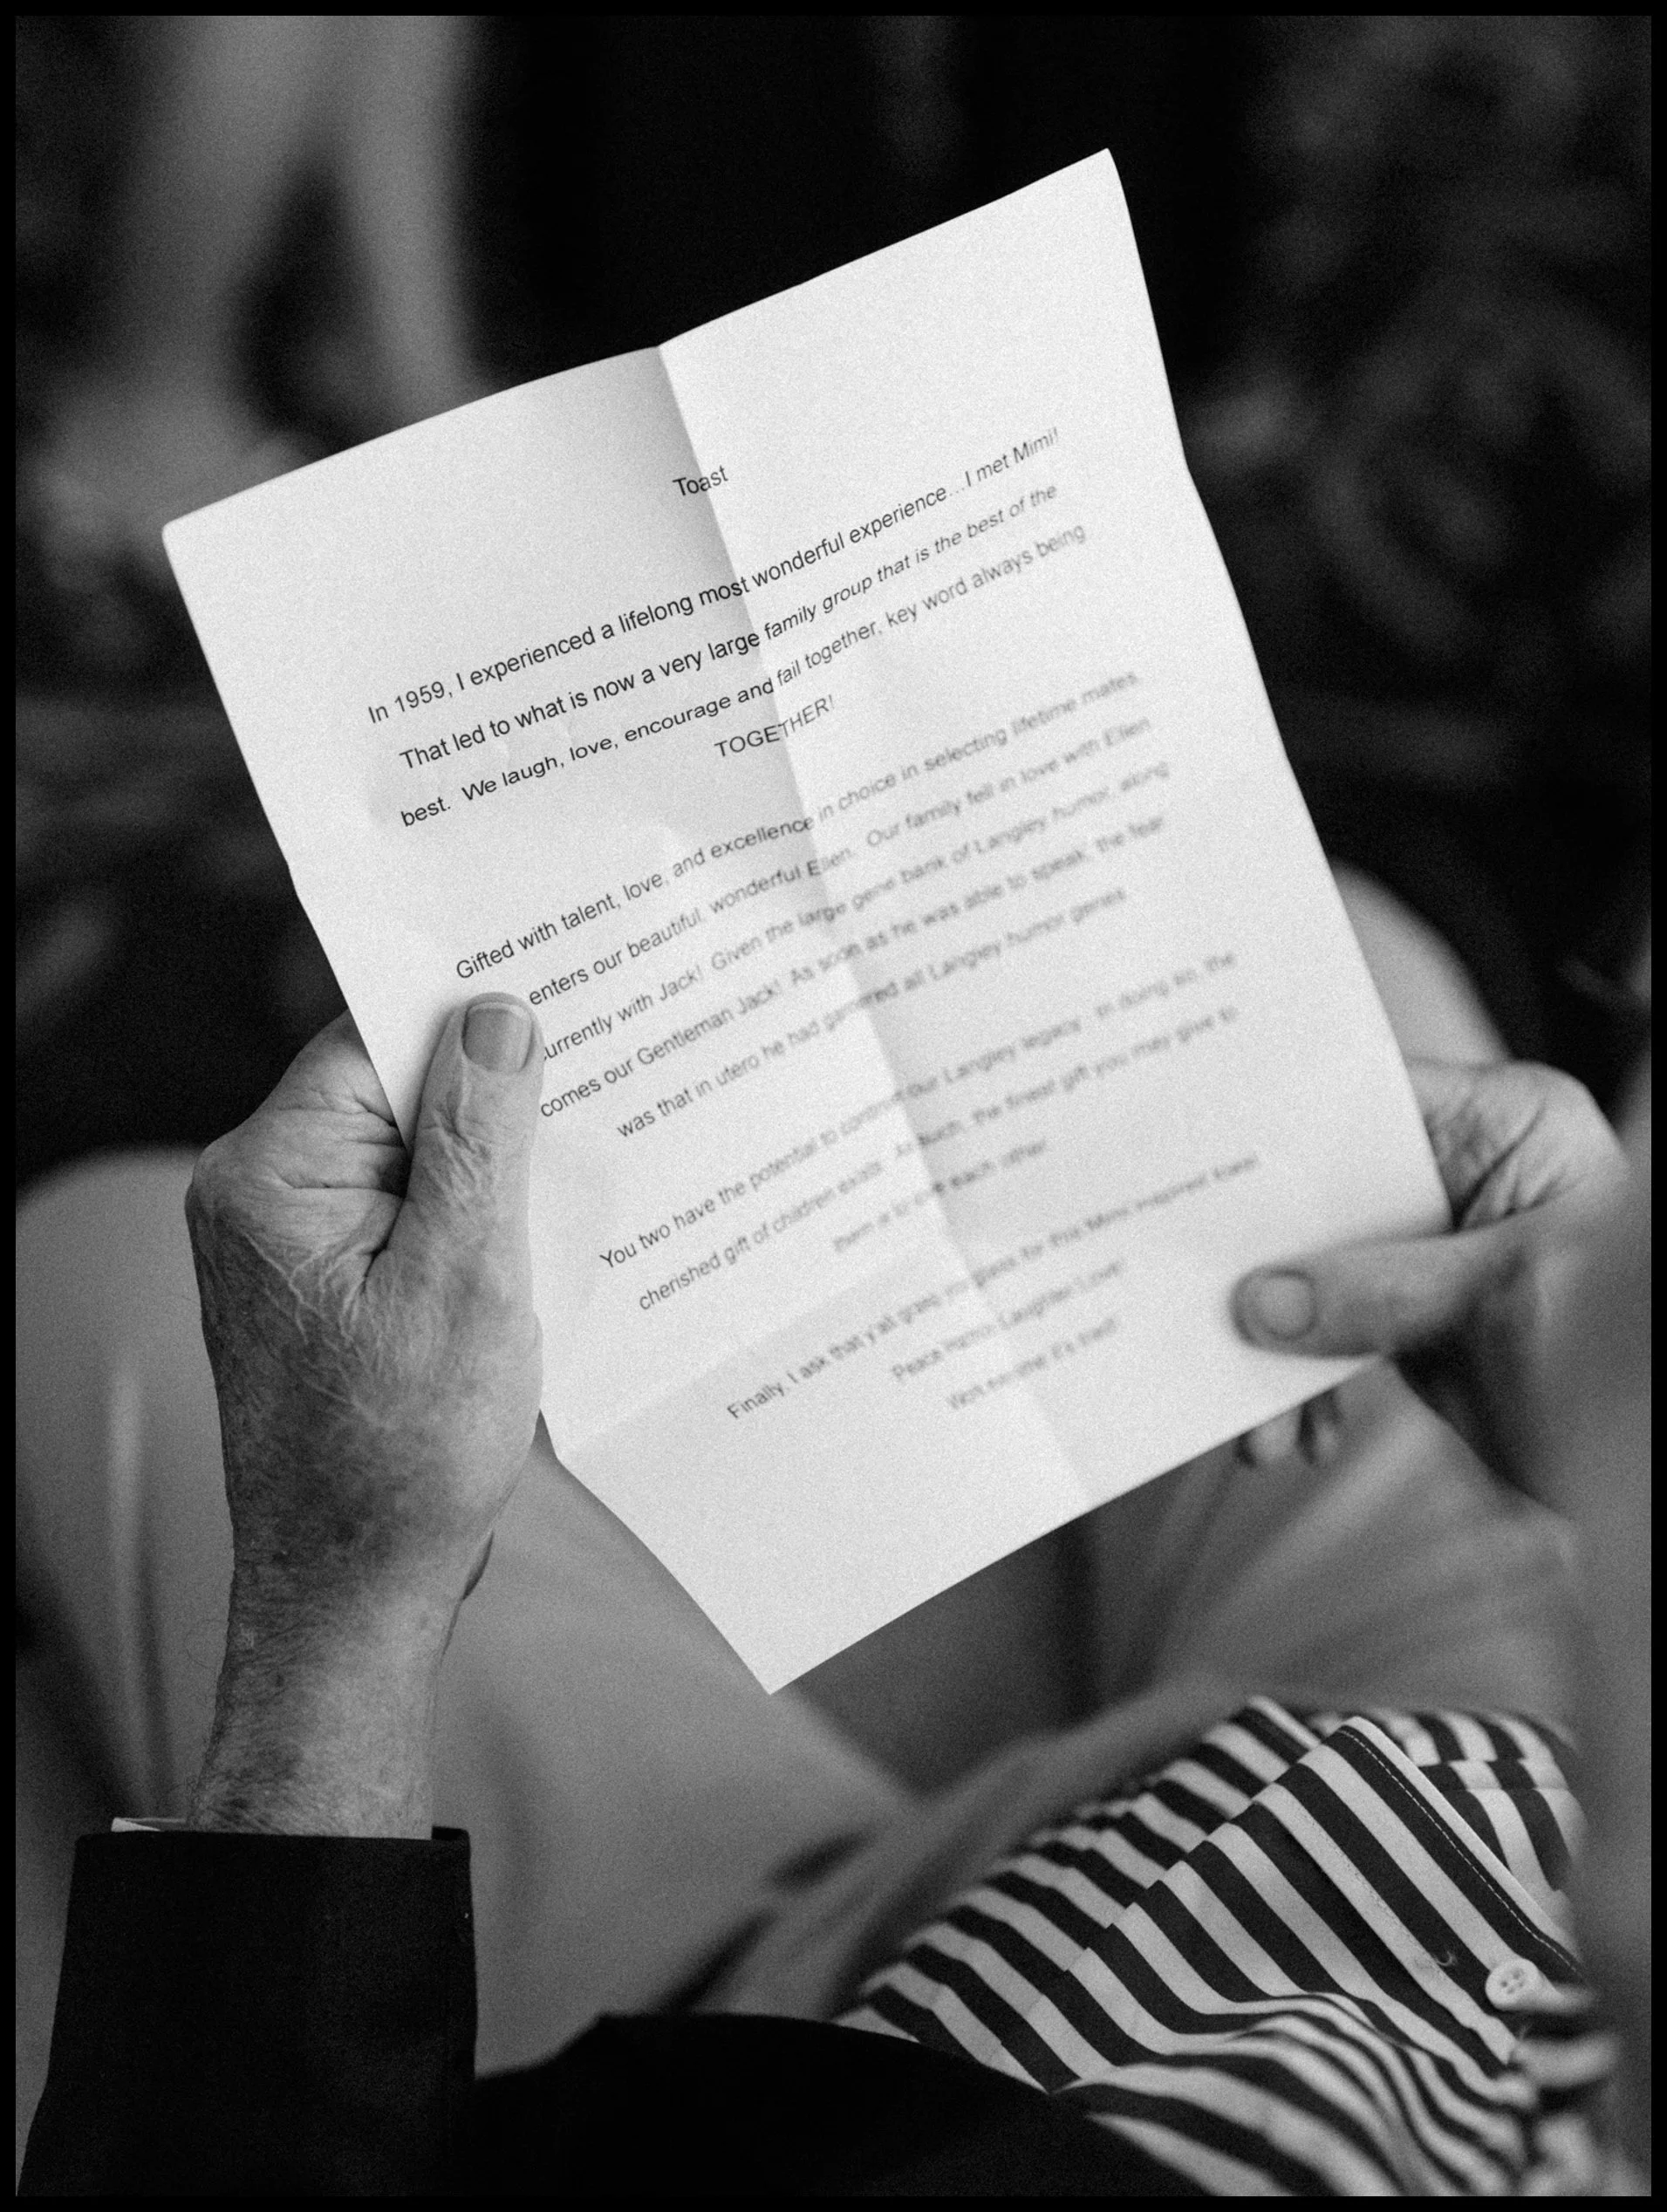 Toast
In 1959, I experienced a lifelong most wonderful experience…I met Mimi!
That led to what is now a very large family group that is the best of the
best. We laugh, love, encourage and fail together, key word always being
TOGETHER!
Gifted with talent, love, and excellence in choice in selecting lifetime mates,
enters our beautiful, wonderful Ellen. Our family fell in love with Ellen
urrently with Jack! Given the large gene bank of Langley humor, along
comes our Gentleman Jack! As soon as he was able to speak, the fear
was that in utero he had garnered all Langley humor genes.
You two have the potential to continue our Langley legacy. In doing so, the
cherished gift of children exists. As such, the finest gift you may give to
them is to love each other.
Finally, I ask that y'all grasp your glass for this Mimi inspired toast
Peace Laughter Love!